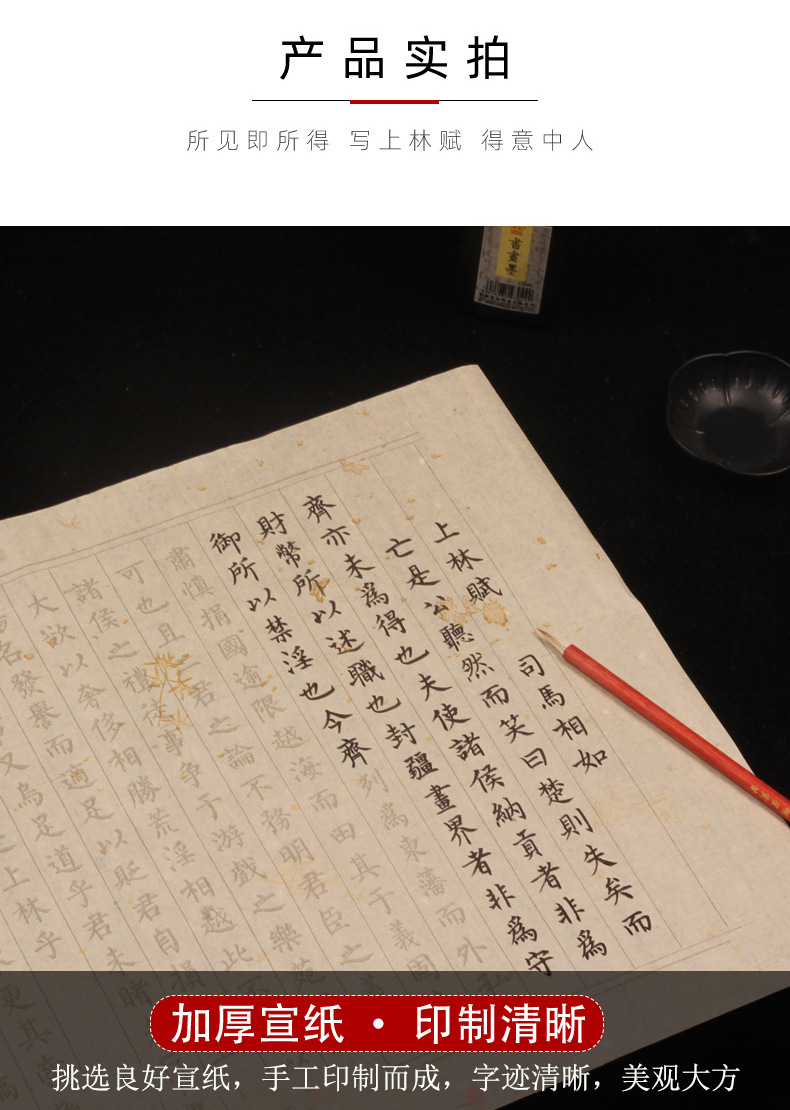 产品实拍
所见即所得 写上林赋 得意中人
書畫墨
上林賦 司馬相如
亡是公聽然而笑曰楚則失矣而
齊亦未爲得也夫使諸侯納貢者非爲
財幣所以述職也封疆畫界者非爲守
御所以禁淫也今齊列爲東藩而外私
肅慎捐國逾限越海而田其于義固
可也且二君之論不務明君臣之
諸侯之禮徒事争于游戲之樂苑
大欲以奢侈相勝荒淫相越此不
名發譽而適足以貶君自損
又烏足道乎君未睹
上林乎
更其南
加厚宣纸 · 印制清晰
挑选良好宣纸，手工印制而成，字迹清晰，美观大方